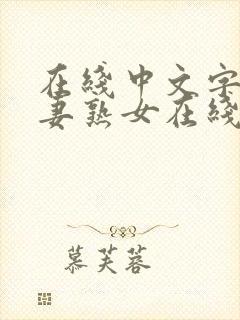 在綫中文字
妻熟女在綫
慕芙蓉